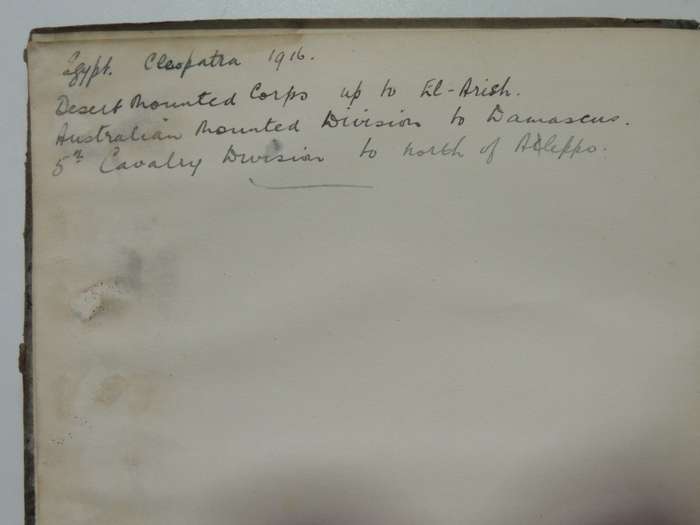 Egypt. Cleopatra 1916.
Desert Mounted Corps up to El-Arish.
Australian Mounted Division to Damascus.
5th Cavalry Division to north of Alleppo.